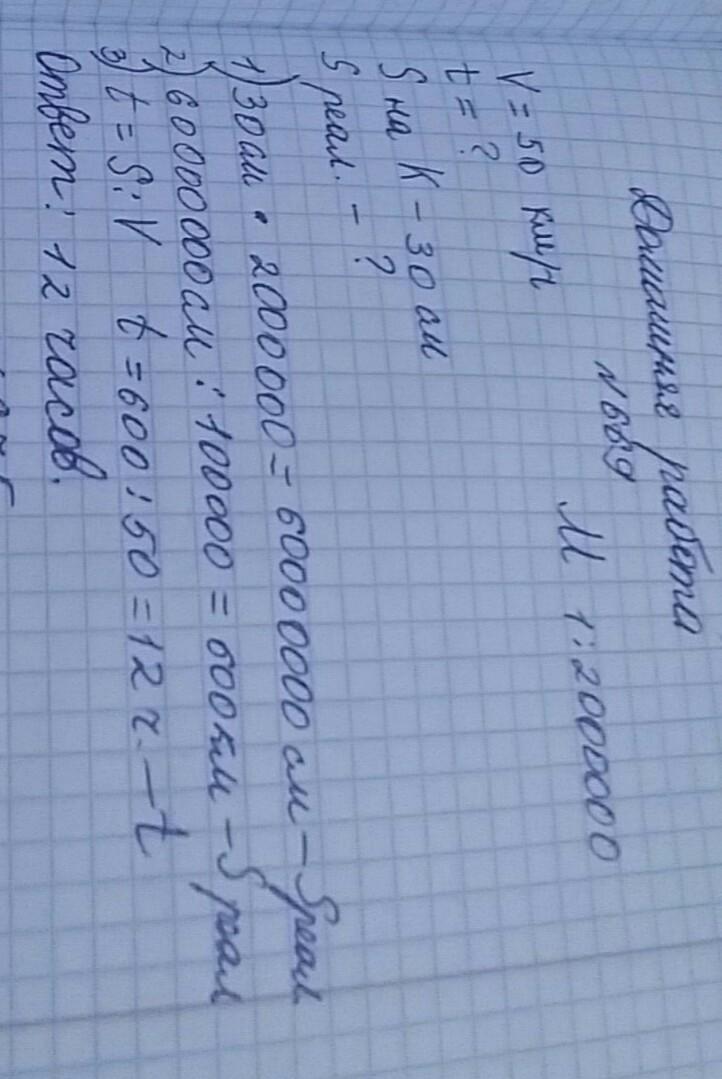 Домашняя работа
№669
М 1:2000000
V = 50 км/ч
t = ?
S на К - 30 см
S реал. - ?
1) 30 см • 2000000 = 60000000 см - S реал
2) 60000000 см : 100000 = 600 км - S реал
3) t = S : V t = 600 : 50 = 12 ч. - t
Ответ: 12 часов.